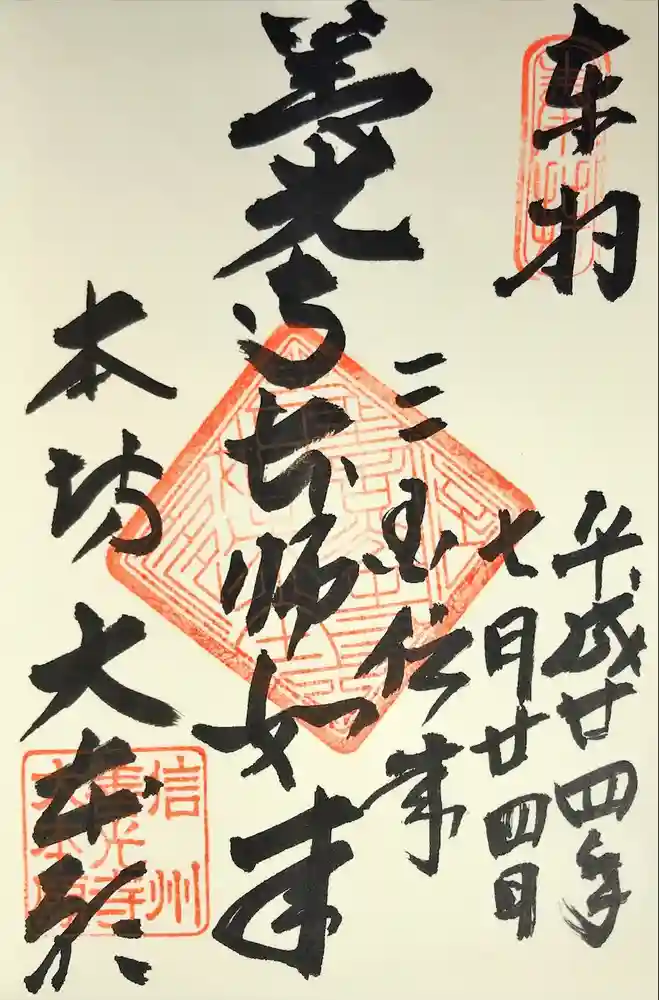 奉拝
平成廿四年
七月廿四日
三国伝来
善光寺本師如来
本坊 大本願
信州
善光寺
大本願